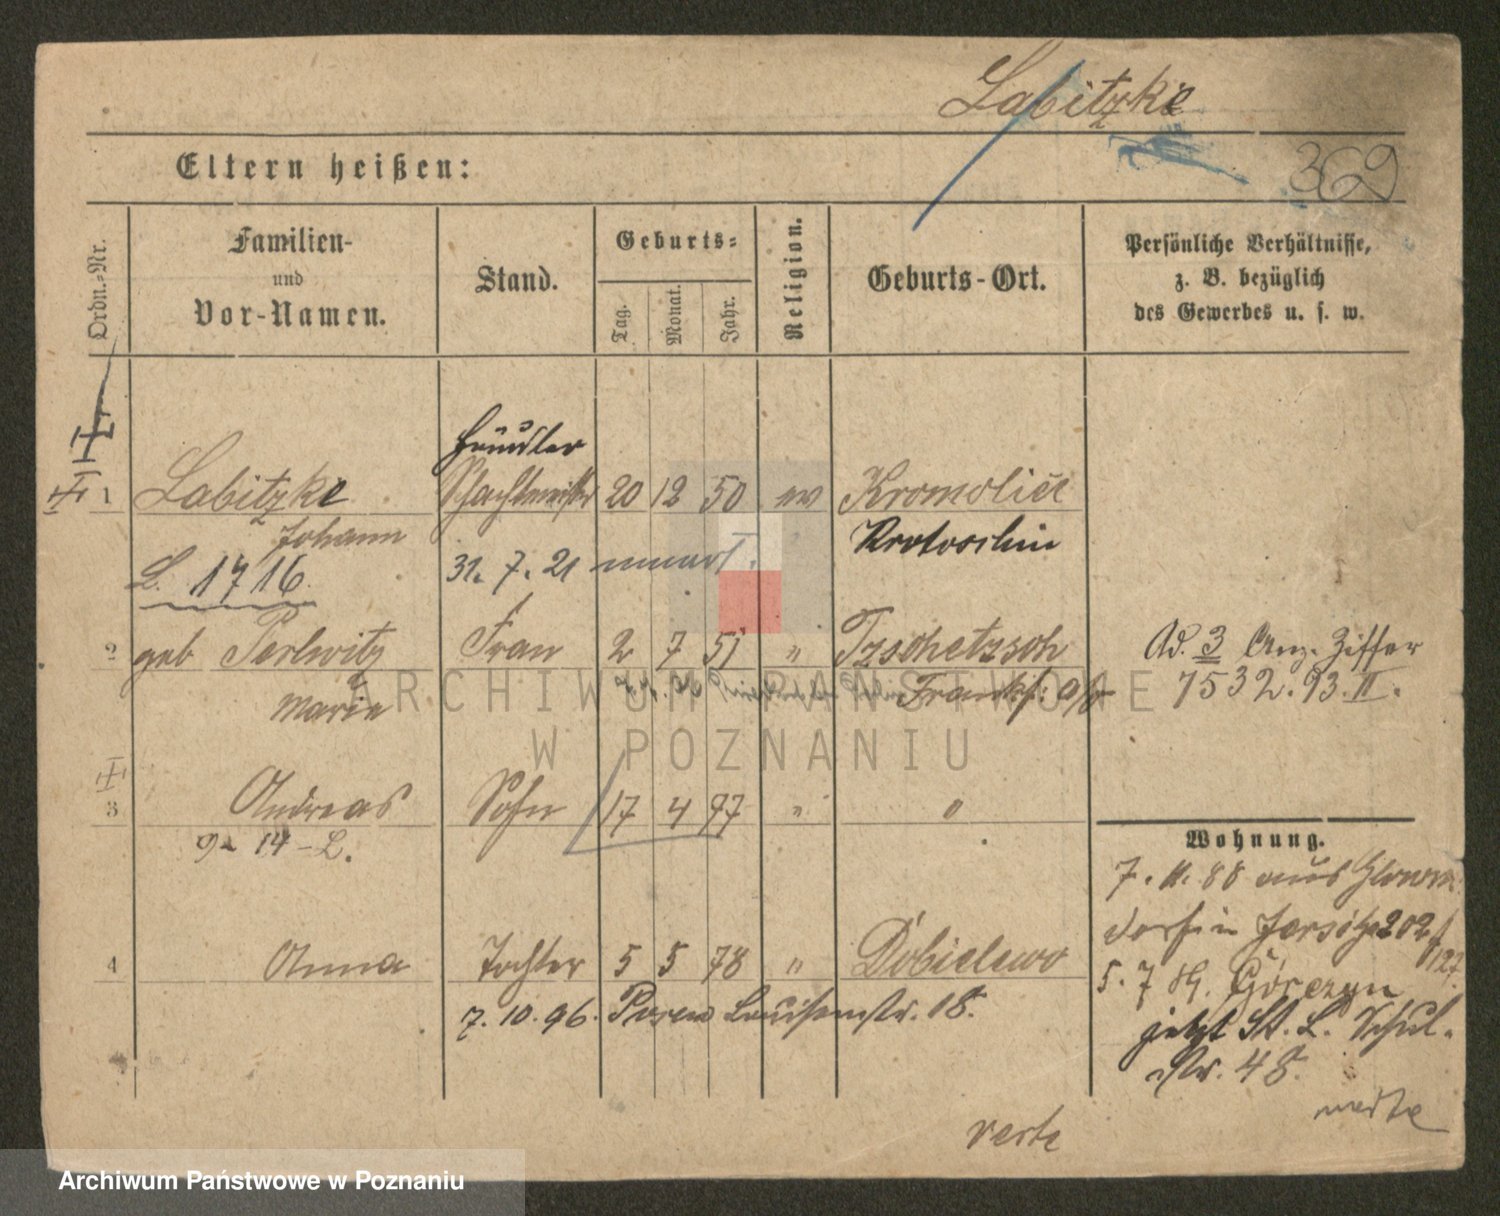 Labitzke
369
Eltern heißen:
Ordn.-Nr.
Familien-
und
Vor-Namen.
Stand.
Geburts-
Tag.
Monat.
Jahr.
Religion.
Geburts-Ort.
Persönliche Verhältnisse,
z. B. bezüglich
des Gewerbes u. s. w.
Händler
1 Labitzke Schachtmeister 20 12 50 ev Kromolice
Johann Krotoschin
L. 1716. 31. 7. 21
2 geb Perlwitz Frau 2 7 51 " Tzschetzsch
Marie Frankf. a/O
Ad. 3 Anz. Ziffer
7532. 93. II.
3 Andreas Sohn 17 4 77 " "
14 - L.
4 Anna Tochter 5 5 78 " Dobielewo
7. 10. 96. Posen Louisenstr. 18.
Wohnung.
7. 11. 88 aus
dorf in Jersitz 202
/127
5. 7 Górczyn
jetzt St. L. Schul-
str. 48.
verte
verte
ARCHIWUM PAŃSTWOWE
W POZNANIU
Archiwum Państwowe w Poznaniu